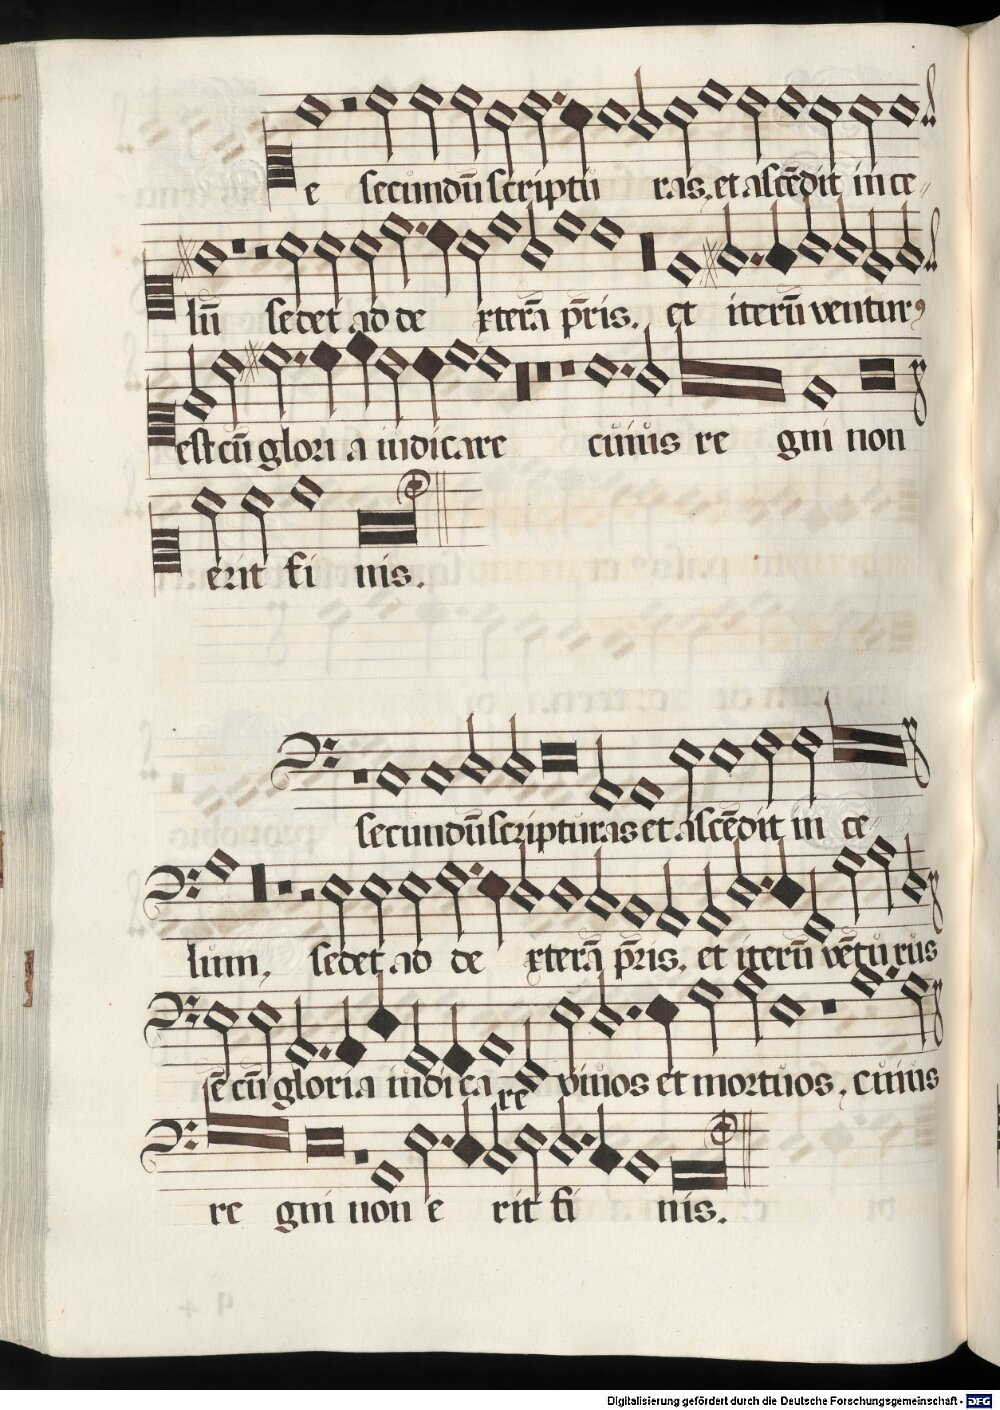 e secundū scriptu ras. et ascēdit in ce-
lū sedet ad de xterā p̄ris. et iterū venturꝰ
est cū glori a iudicare cuius re gni non
erit fi nis.
secundū scripturas et ascēdit in ce-
lum. sedet ad de xterā p̄ris. et iterū vētu rus
ē cū gloria iudica re viuos et mortuos. cuius
re gni non e rit fi nis.
Digitalisierung gefördert durch die Deutsche Forschungsgemeinschaft - DFG